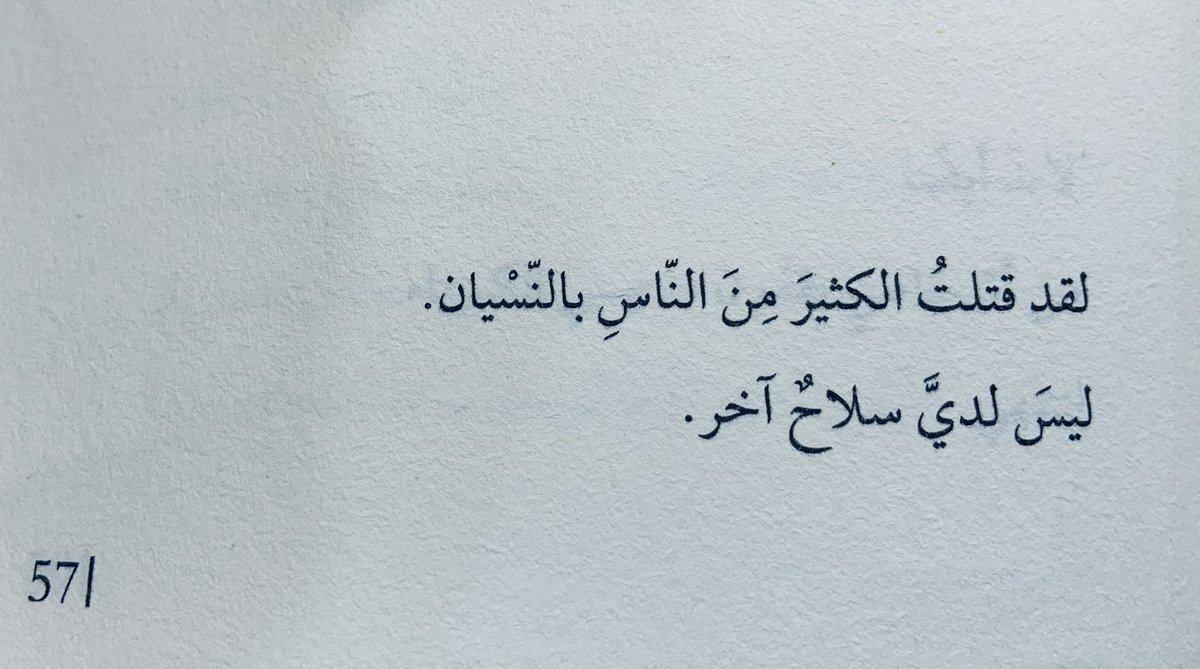 لقد قتلتُ الكثيرَ مِنَ النّاسِ بالنّسْيان.
ليسَ لديَّ سلاحٌ آخر.
57|